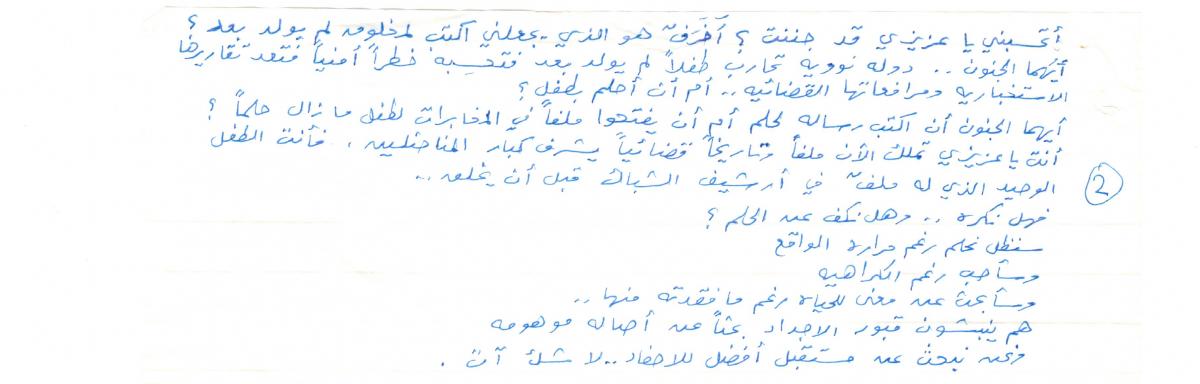 أتحسبني يا عزيزي قد جننت ؟ أخَرَفٌ هو الذي يجعلني اكتب لمخلوق لم يولد بعد ؟
أيهما الجنون .. دوله نوويه تحارب طفلاً لم يولد بعد فتحسبه خطراً أمنياً فتعد تقاريرها
الاستخباريه ومرافعاتها القضائيه .. أم أن أحلم بطفل ؟
أيهما الجنون أن اكتب رساله لحلم أم أن يفتحوا ملفاً في المخابرات لطفل ما زال حلماً ؟
أنت يا عزيزي تملك الأن ملفاً وتاريخاً قضائياً يشرف كبار المناضليين . فأنت الطفل
الوحيد الذي له ملفٌ في أرشيف الشاباك قبل أن يخلق ..
2
فهل نكره .. وهل نكف عن الحلم ؟
سنظل نحلم رغم مراره الواقع
وسأحب رغم الكراهيه
وسأبحث عن معنى للحياه رغم ما فقدته منها ..
هم ينبشون قبور الاجداد بحثاً عن أصاله موهومه
ونحن نبحث عن مستقبل أفضل للاحفاد .. لا شك آتٍ .